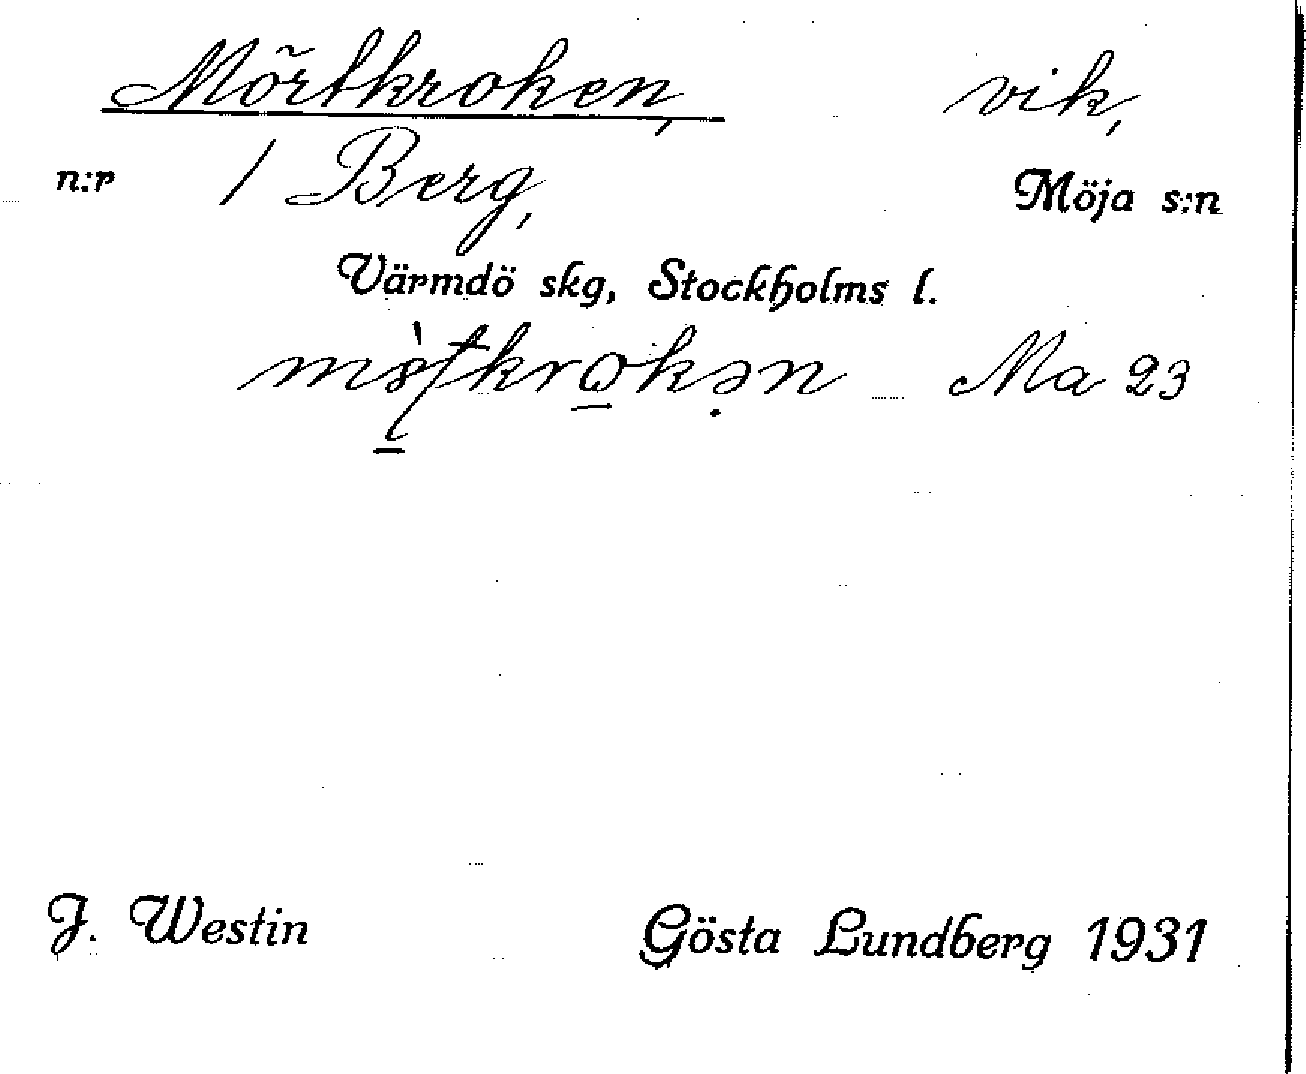 Mörtkroken, vik,
n:r 1 Berg, Möja s:n
Värmdö skg, Stockholms l.
Ma 23
J. Westin Gösta Lundberg 1931